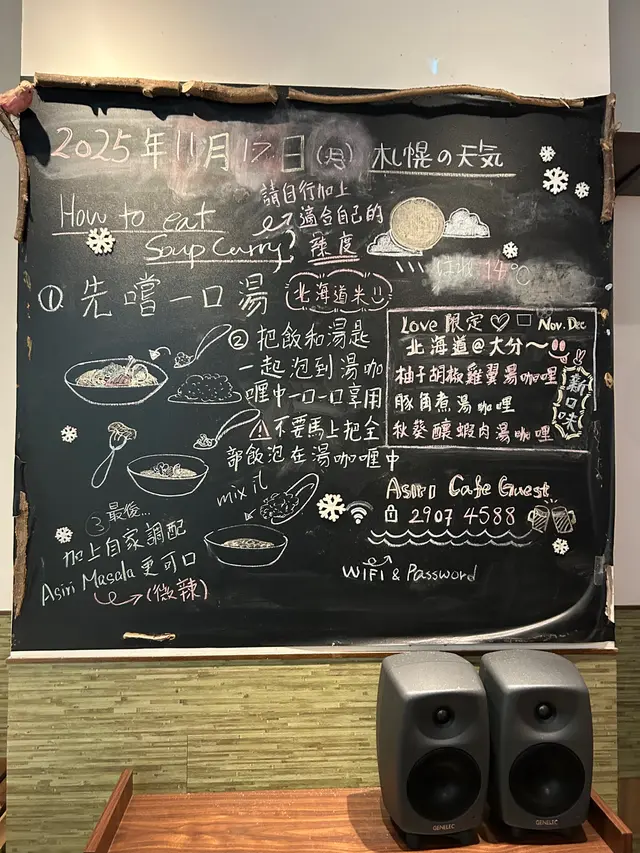 2025年11月17日(月) 札幌の天気
How to eat
Soup Curry?
請自行加上
適合自己的
辣度
14℃
① 先嚐一口湯
北海道米
② 把飯和湯匙
一起泡到湯咖
喱中一口一口享用
⚠不要馬上把全
部飯泡在湯咖喱中
mix it
③ 最後...
加上自家調配
Asiri Masala更可口
(微辣)
Love 限定♡ Nov. Dec
北海道@大分～
柚子胡椒雞翼湯咖喱
豚角煮湯咖喱
秋葵釀蝦肉湯咖喱
新口味
Asiri Cafe Guest
2907 4588
WiFi & Password
GENELEC
GENELEC